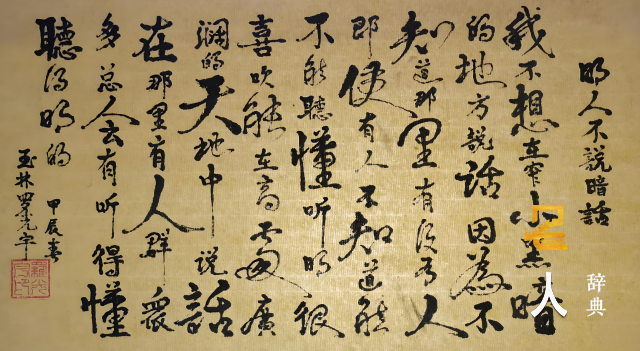 明人不說暗話
我不想在窄小黑暗
的地方說話因為不
知道那里有没有人
即使有人不知道能
不能聽懂听明很
喜欢能在高處廣
濶的天地中說話
在那里有人群衆
多总人会有听得懂
聽得明的
甲辰春
玉林
人
辞典